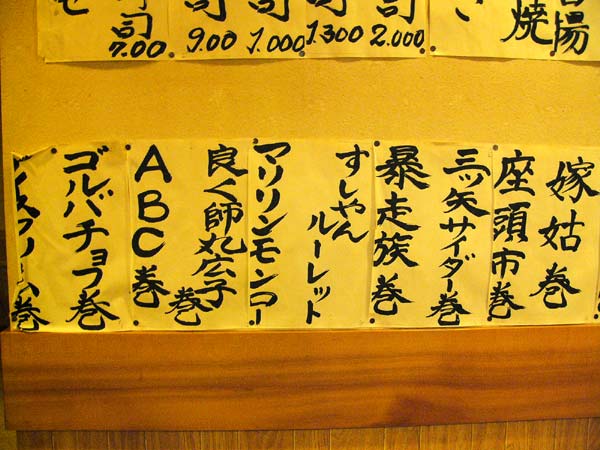 湯
焼
司
2.000
司
1300
司
1.000
司
9.00
司
7.00
せ
嫁姑巻
座頭市巻
三ッ矢サイダー巻
暴走族巻
すしやん
ルーレット
マリリンモンロー
良く師丸広子
巻
ABC巻
ゴルバチョフ巻